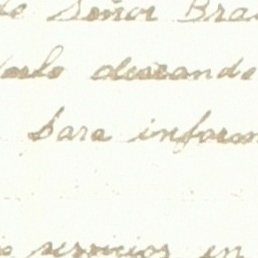 de Señor Bra
desande
Para inform
servicios en